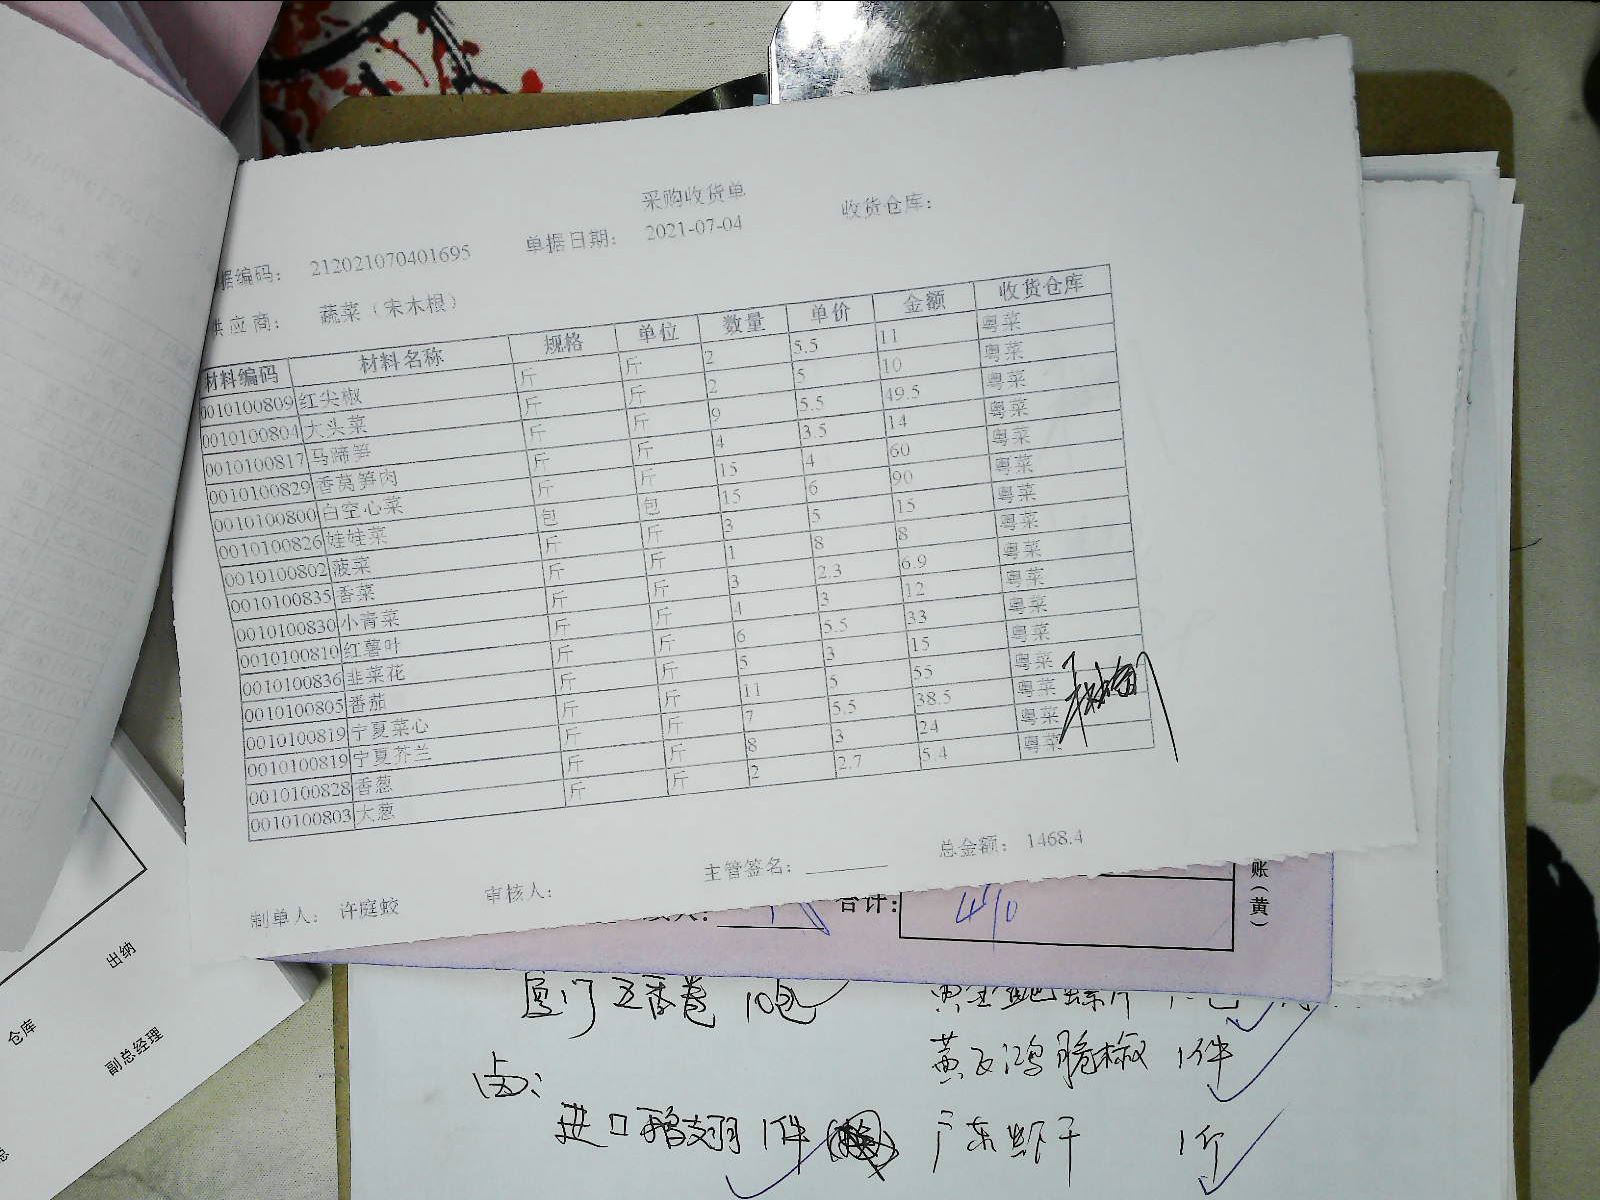 采购收货单
据编码： 212021070401695 单据日期： 2021-07-04 收货仓库：
供应商： 蔬菜（宋木根）
材料编码 材料名称 规格 单位 数量 单价 金额 收货仓库
0010100809 红尖椒 斤 斤 2 5.5 11 粤菜
0010100804 大头菜 斤 斤 2 5 10 粤菜
0010100817 马蹄笋 斤 斤 9 5.5 49.5 粤菜
0010100829 香莴笋肉 斤 斤 4 3.5 14 粤菜
0010100800 白空心菜 斤 斤 15 4 60 粤菜
0010100826 娃娃菜 包 包 15 6 90 粤菜
0010100802 菠菜 斤 斤 3 5 15 粤菜
0010100835 香菜 斤 斤 1 8 8 粤菜
0010100830 小青菜 斤 斤 3 2.3 6.9 粤菜
0010100810 红薯叶 斤 斤 4 3 12 粤菜
0010100836 韭菜花 斤 斤 6 5.5 33 粤菜
0010100805 番茄 斤 斤 5 3 15 粤菜
0010100819 宁夏菜心 斤 斤 11 5 55 粤菜
0010100819 宁夏芥兰 斤 斤 7 5.5 38.5 粤菜
0010100828 香葱 斤 斤 8 3 24 粤菜
0010100803 大葱 斤 斤 2 2.7 5.4 粤菜
制单人： 许庭蛟 审核人： 主管签名： 总金额： 1468.4
合计： 410
账（黄）
厦门五香卷 10包
黄飞鸿脆椒 1件
卤：
进口鸭翅 1件 广东虾干 1斤
出纳
仓库
副总经理